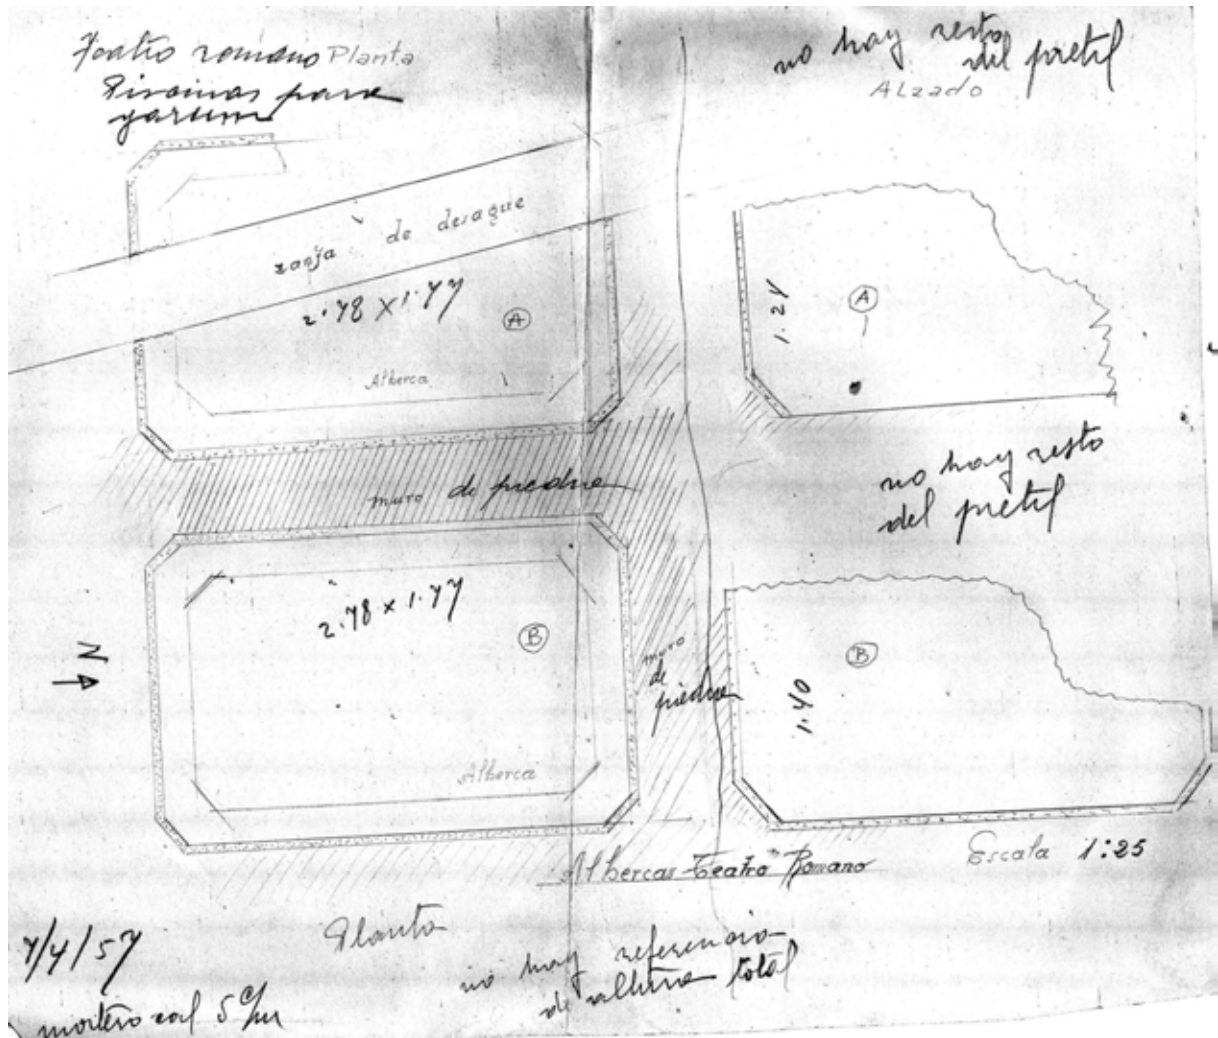 Teatro romano Planta
Piscinas para
garum
no hay resto
del pretil
Alzado
zanja de desague
2.78 X 1.77
A
Alberca
1.24
A
muro de piedra
no hay resto
del pretil
2.78 x 1.77
B
N
muro
de
piedra
B
1.40
Alberca
Albercas Teatro Romano
Escala 1:25
Planta
no hay referencia
de altura total
7/4/57
mortero cal 5 c/m